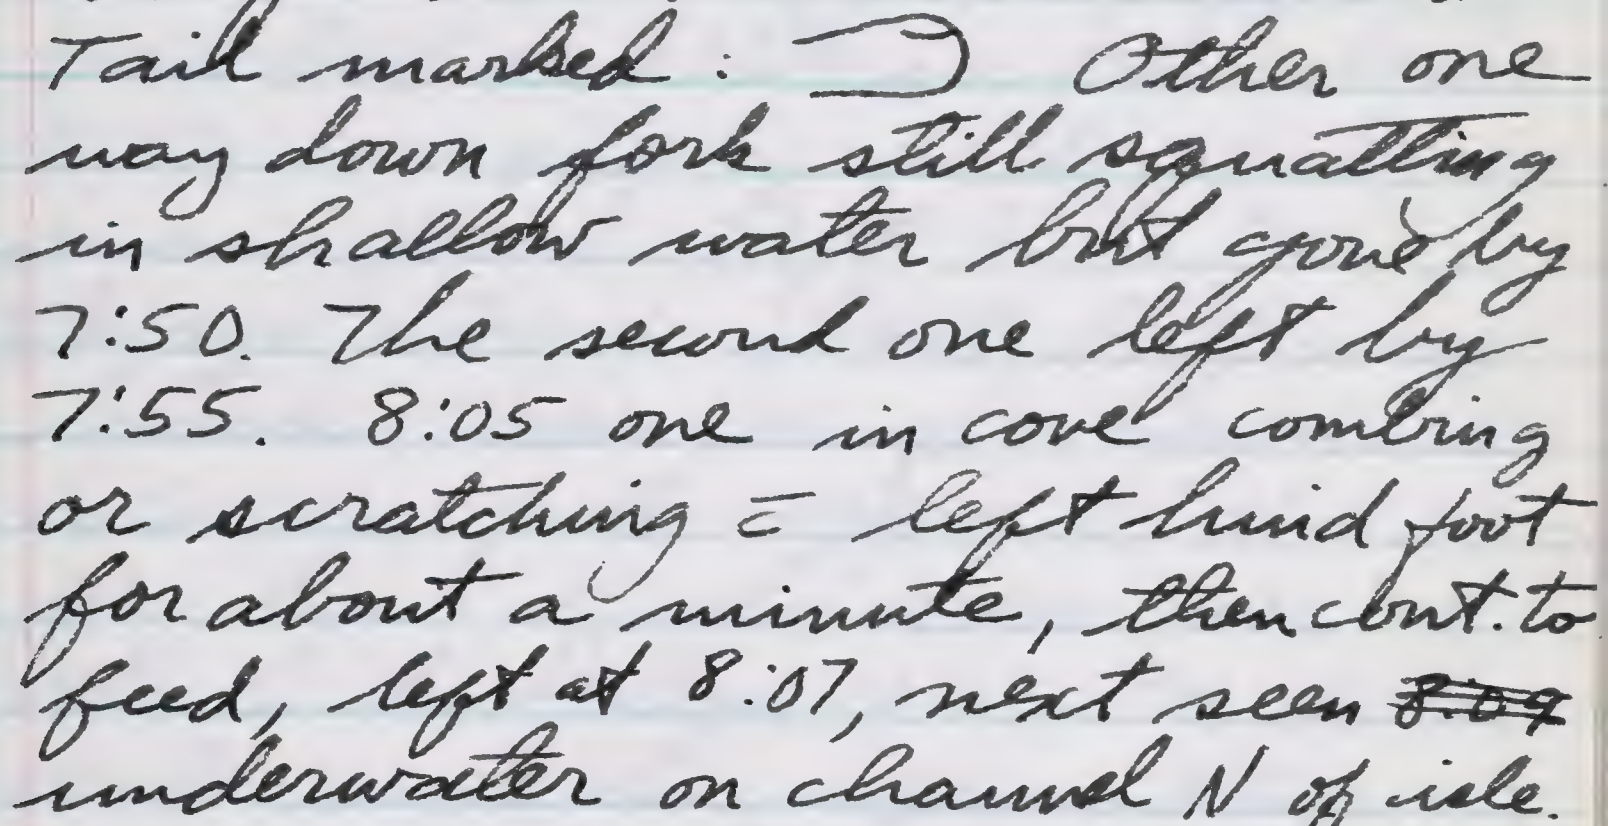 Tail marked: Other one
way down fork still squatting
in shallow water but gone by
7:50. The second one left by
7:55. 8:05 one in cove combing
or scratching = left hind foot
for about a minute, then cont. to
feed, left at 8:07, next seen 8:09
underwater on channel N of isle.